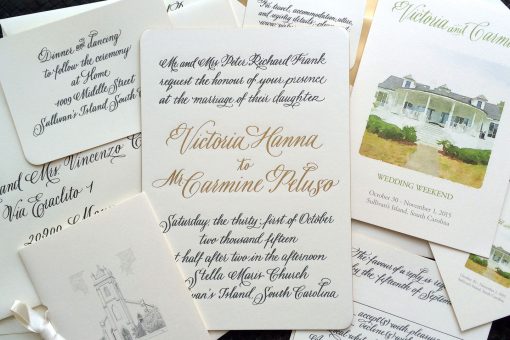 Dinner and dancing
to follow the ceremony
at Home
1009 Middle Street
Sullivan's Island, South Caro
and Mrs. Vincenzo
Via Eraclito 1
20900
Mr. and Mrs. Peter Richard Frank
request the honour of your presence
at the marriage of their daughter
Victoria Hanna
to
Mr. Carmine Peluso
Saturday, the thirty-first of October
two thousand fifteen
at half after two in the afternoon
Stella Maris Church
Sullivan's Island, South Carolina
travel, accommodation
and registry details, please
Victoria and Carmi
WEDDING WEEKEND
October 30 - November 1, 2015
Sullivan's Island, South Carolina
The favour of a reply is
by the fifteenth of Septem
accept(s) with pleasure
decline(s) with
WEDDING